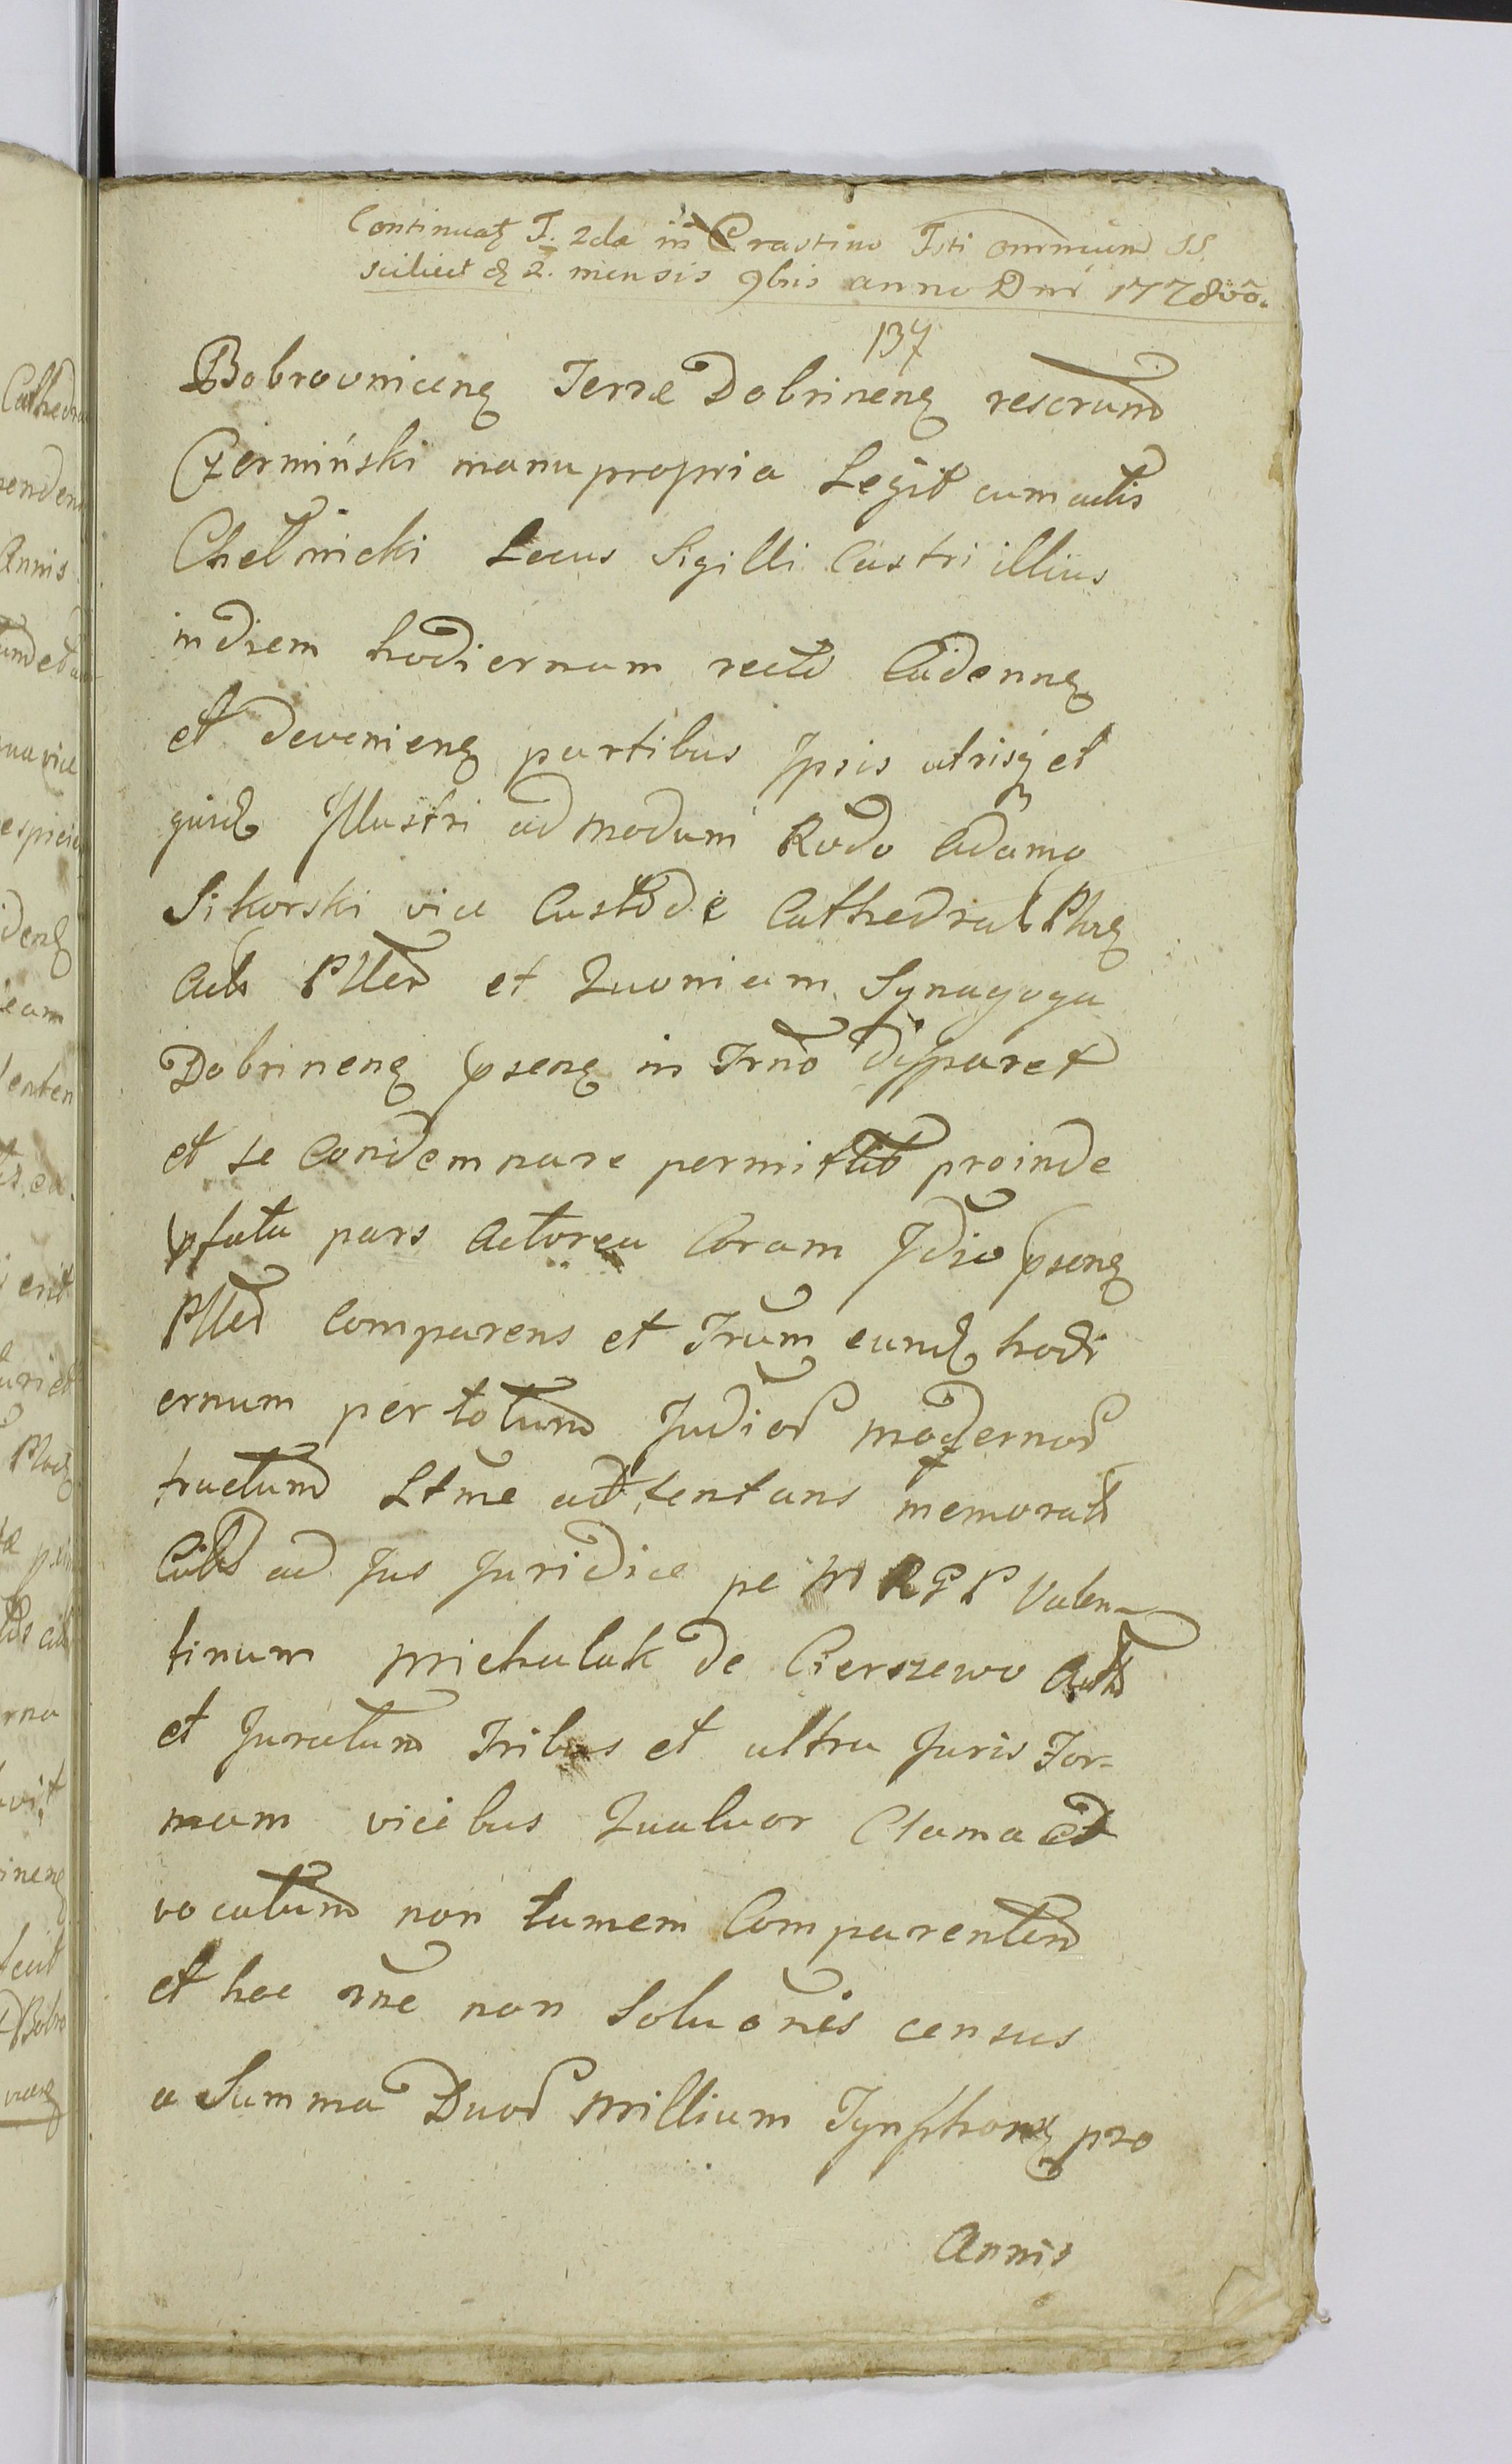 Continuaõ T. 2da in Crastino Fsti omnium SS.
scilicet d 2. mensis 9bris anno Dni 1778vo.
137
Bobrovnicenẹ Terræ Dobrinenẹ reservand
Czermiński manu propria Legit cum actis
Chełmicki Locus Sigilli Castri illius
in diem hodiernum recte Cadennẹ
et devenienẹ partibus Ipsis utrisq et
quid Illustri admodum Rndo Adamo
Sikorski vice Custode Cathedral Plocẹ
Act Plled et Quoniam Synagoga
Dobrinenẹ psenẹ in Trno Comparet
et se Condemnare permittit proinde
pfata pars Actorea Coram Jdio psenẹ
Plled Comparens et Trum eund hodi
ernum per totum Judior modernor
tractum Ltme adtentans memorat
Citt ad Jus Juridice pe M R G P Valen-
tinum Michalak de Cierszewo Auth
et Juratum Tribus et ultra Juris For-
mam vicibus Quatuor Clama et
vocatum non tamem Comparentem
et hoc rne non Soluõnis census
a Summa Duor Millium Tynphonẹ pro
Annis